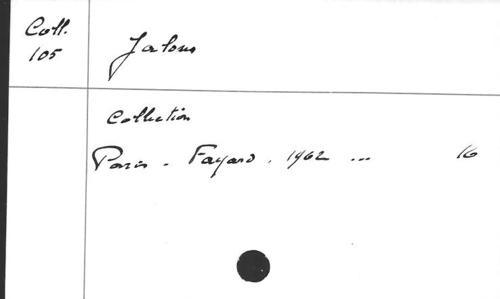 Coll.
105
Jalons
Collection
Paris. Fayard. 1962 ... 16